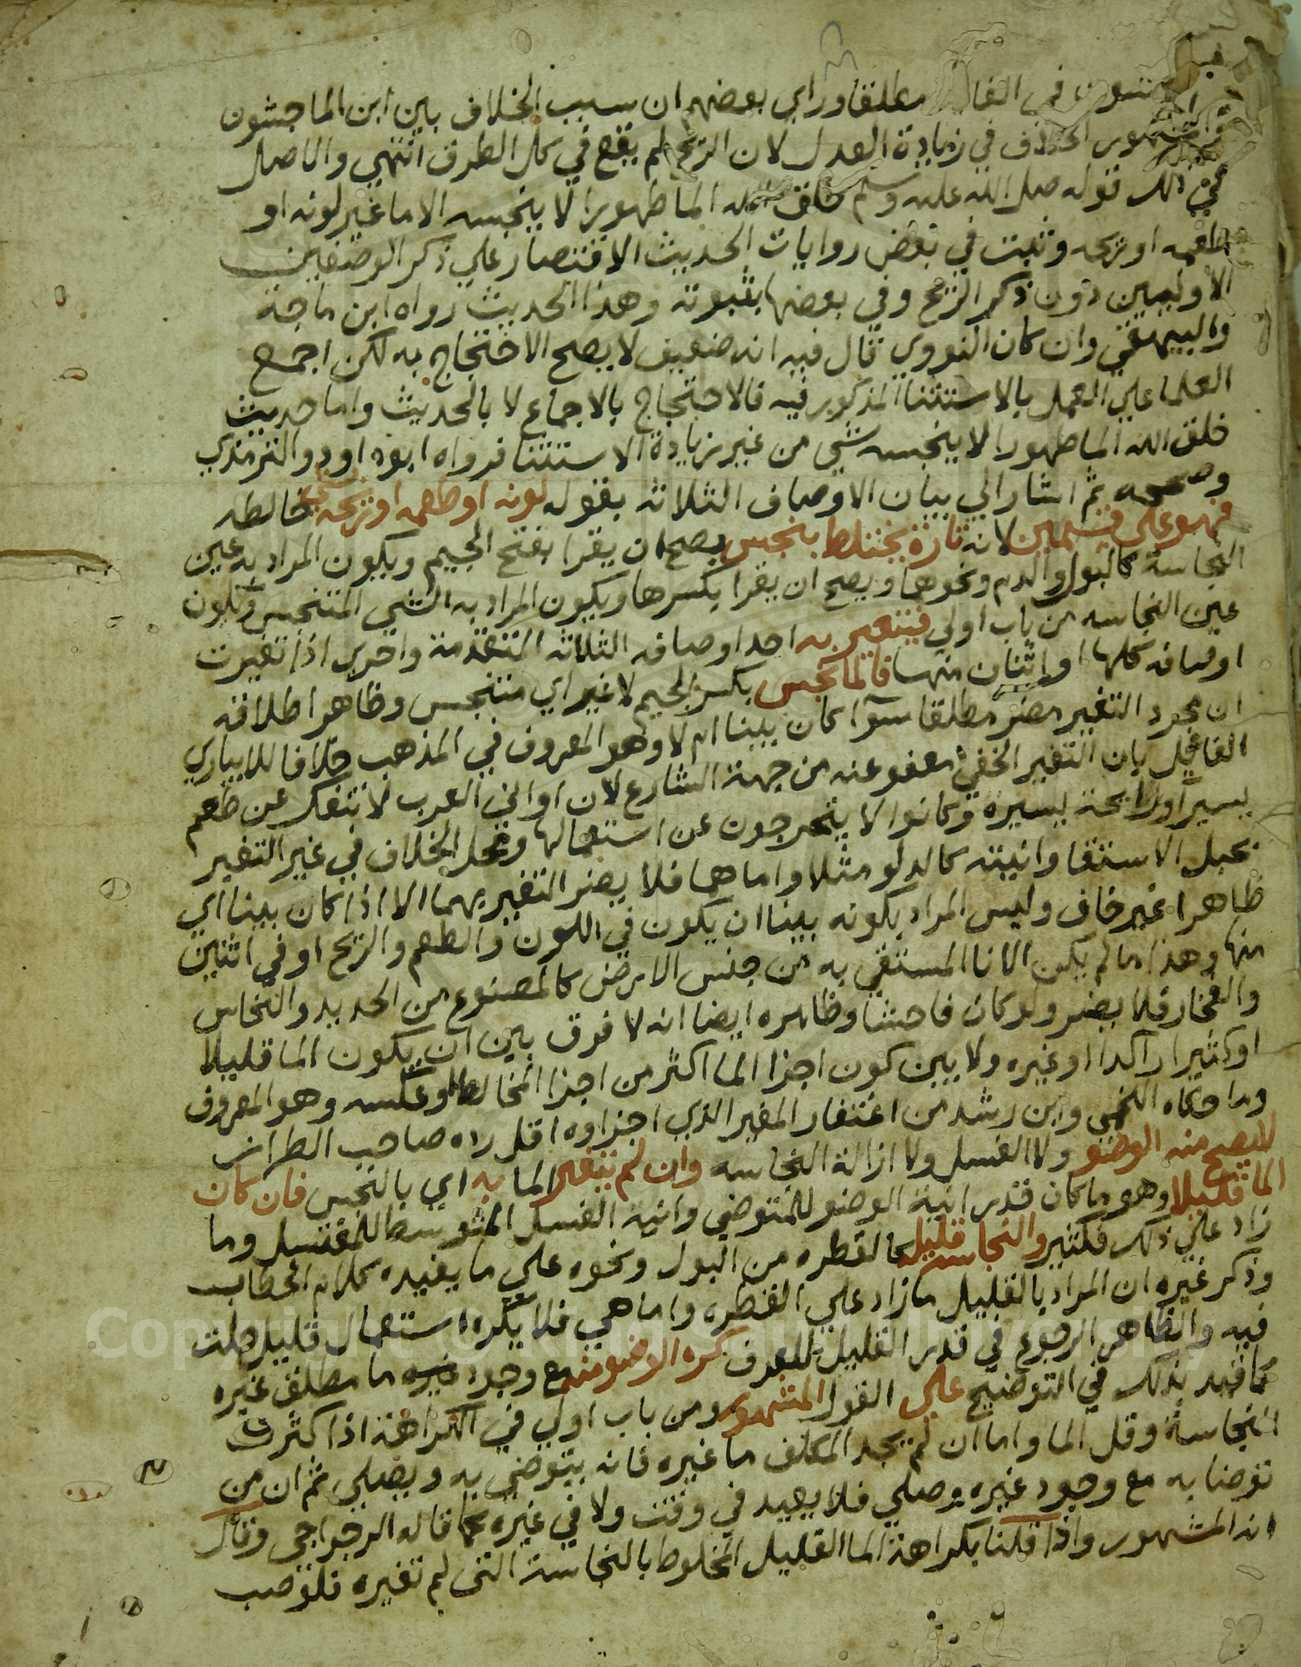 مطلقا وراي بعضهم ان سبب الخلاف بين ابن الماجشون
والمشهور الخلاف في زيادة العدل لان الريح لم يقع في كل الطرق انتهي والاصل
في ذلك قوله صلى الله عليه وسلم خلق الله الما طهورا لا ينجسه الا ما غير لونه او
طعمه او ريحه وثبت في بعض روايات الحديث الاقتصار علي ذكر الوصفين
الاوليين دون ذكر الريح وفي بعضها بثبوته وهذا الحديث رواه ابن ماجة
والبيهقي وان كان النووي قال فيه انه ضعيف لا يصح الاحتجاج به لكن اجمع
العلما علي العمل بالاستثنا المذكور فيه فالاحتجاج بالاجماع لا بالحديث واما حديث
خلق الله الما طهورا لا ينجسه شي من غير زيادة الاستثنا فرواه ابوداود والترمذي
وصححه ثم اشار الي بيان الاوصاف الثلاثة بقوله لونه او طعمه او ريحه خالطه
فهو على قسمين لانه تارة يختلط بنجس يصح ان يقرا بفتح الجيم ويكون المراد به عين
النجاسة كالبول والدم ونحوها ويصح ان يقرا بكسرها ويكون المراد به الشي المتنجس وتكون
عين النجاسه من باب اولي فيتغير به احد اوصافه الثلاثة المتقدمة واحري اذا تغيرت
اوصافه كلها او اثنان منها فالما نجس بكسر الجيم لا غير اي متنجس وظاهر اطلاقه
ان مجرد التغير مضر مطلقا سوآ كان بينا ام لا وهو المعروف في المذهب خلافا للابياري
القايل بان التغير الخفي معفو عنه من جهة الشارع لان اواني العرب لا تنفك عن طعم
يسير او رايحة يسيرة وكانوا لا يتحرجون عن استعمالها ومحل الخلاف في غير التغير
بحبل الاستقا وانيته كالدلو مثلا واما هما فلا يضر التغير بهما الا اذا كان بينا اي
ظاهرا غير خاف وليس المراد بكونه بينا ان يكون في اللون والطعم والريح او في اثنين
منها وهذا ما لم يكن الانا المستقي به من جنس الارض كالمصنوع من الحديد والنحاس
والفخار فلا يضر ولو كان فاحشا وظاهره ايضا انه لا فرق بين ان يكون الما قليلا
او كثيرا راكدا او غيره ولا بين كون اجزا الما اكثر من اجزا المخالط او عكسه وهو المعروف
وما حكاه اللخمي وابن رشد من اغتفار المغير الذي اجزاوه اقل رده صاحب الطراز
لا يصح منه الوضو ولا الغسل ولا ازالة النجاسه وان لم يتغير الما به اي بالنجس فان كان
الما قليلا وهو ما كان قدر انية الوضو للمتوضي وانية الغسل المتوسط للمغتسل وما
زاد علي ذلك فكثير والنجاسه قليله كالقطره من البول ونحوه علي ما يفيده كلام الحطاب
وذكر غيره ان المراد بالقليل ما زاد علي القطره واما هي فلا يكره استعمال قليل حلت
فيه والظاهر الرجوع في قدر القليل للعرف كره الوضو منه مع وجود ما مطلق غيره
كما قيد بذلك في التوضيح علي القول المشهور ومن باب اولي في الكراهة اذا كثرت
النجاسة وقل الما واما ان لم يجد المكلف ما غيره فانه يتوضي به ويصلي ثم ان من
توضا به مع وجود غيره وصلي فلا يعيد في وقت ولا في غيره كما قاله الرجراجي وقال
انه المشهور واذا قلنا بكراهة الما القليل المخلوط بالنجاسة التي لم تغيره فلو صب